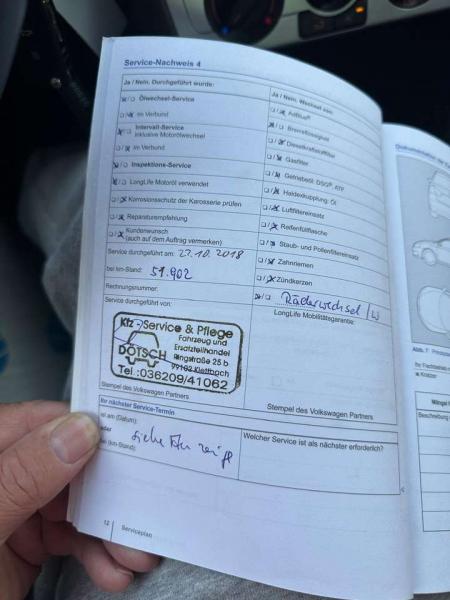 Service-Nachweis 4
Ja / Nein. Durchgeführt wurde:
Ölwechsel-Service
im Verbund
Intervall-Service
inklusive Motorölwechsel
im Verbund
Inspektions-Service
LongLife Motoröl verwendet
Korrosionsschutz der Karosserie prüfen
Reparaturempfehlung
Kundenwunsch
(auch auf dem Auftrag vermerken)
Service durchgeführt am: 22.10.2018
bei km-Stand: 51.902
Rechnungsnummer:
Service durchgeführt von:
Kfz - Service & Pflege
Fahrzeug und
Ersatzteilhandel
DOTSCH
Ringstraße 25 b
99102 Klettbach
Tel.:036209/41062
Stempel des Volkswagen Partners
Ja / Nein. Wechsel von:
AdBlue®
Bremsflüssigkeit
Dieselkraftstofffilter
Gasfilter
Getriebeöl: DSG®, ATF
Haldexkupplung: Öl
Luftfiltereinsatz
Reifenfüllflasche
Staub- und Pollenfiltereinsatz
Zahnriemen
Zündkerzen
Räderwechsel /W
LongLife Mobilitätsgarantie:
Stempel des Volkswagen Partners
Ihr nächster Service-Termin
ist am (Datum):
oder
bei (km-Stand):
siehe
Welcher Service ist als nächster erforderlich?
12
Serviceplan
Abb. 7
Beschreibung